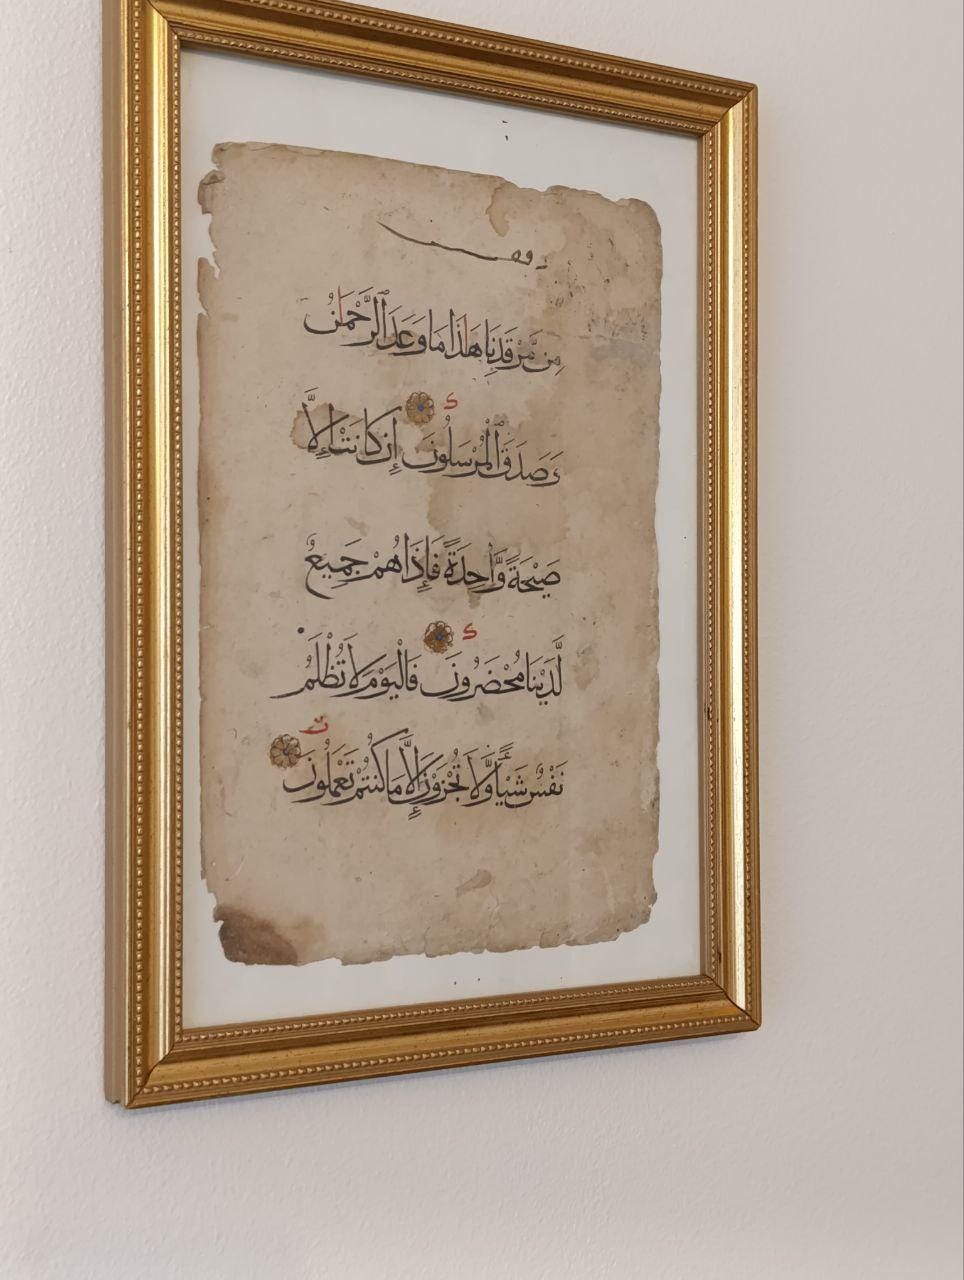 وقف
مِن مَّرْقَدِنَا هَٰذَا مَا وَعَدَ ٱلرَّحْمَٰنُ
وَصَدَقَ ٱلْمُرْسَلُونَ إِن كَانَتْ إِلَّا
صَيْحَةً وَّاحِدَةً فَإِذَا هُمْ جَمِيعٌ
لَّدَيْنَا مُحْضَرُونَ فَالْيَوْمَ لَا تُظْلَمُ
نَفْسٌ شَيْـًٔا وَّلَا تُجْزَوْنَ إِلَّا مَا كُنتُمْ تَعْمَلُونَ